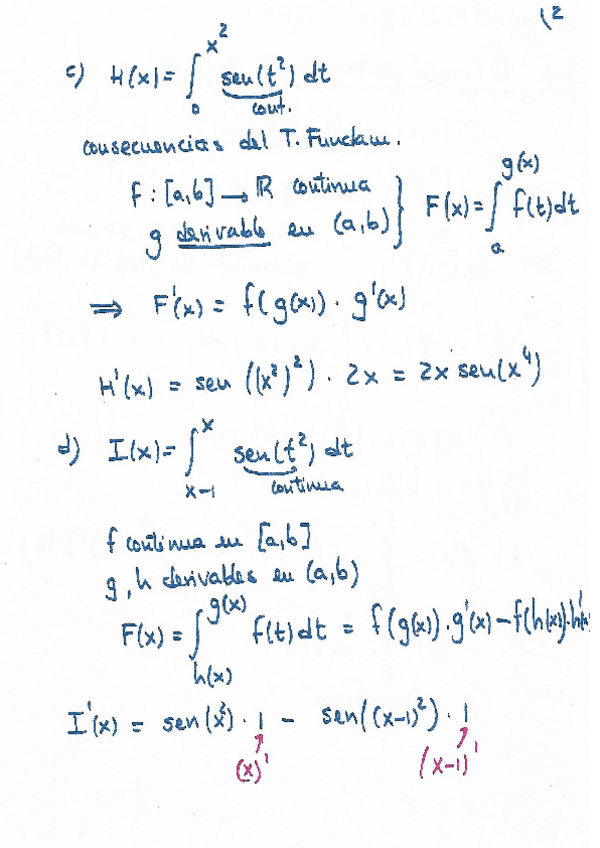 (2
c) H(x) = ∫₀^{x²} sen(t²) dt
cont.
consecuencias del T. Fundam.
f : [a,b] → ℝ continua
g derivable en (a,b) } F(x) = ∫ₐ^{g(x)} f(t)dt
⟹ F'(x) = f(g(x)) · g'(x)
H'(x) = sen((x²)²) · 2x = 2x sen(x⁴)
d) I(x) = ∫_{x-1}^{x} sen(t²) dt
continua
f continua en [a,b]
g, h derivables en (a,b)
F(x) = ∫_{h(x)}^{g(x)} f(t) dt = f(g(x)) · g'(x) − f(h(x)) · h'(x)
I'(x) = sen(x²) · 1 − sen((x−1)²) · 1
(x)' (x−1)'